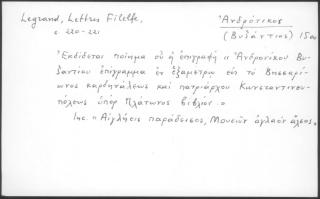 Legrand, Lettres Filelfe,
c. 220-221
Ἀνδρόνικος
(Βυζάντιος) 15αι
Ἐκδίδεται ποίημα οὗ ἡ ἐπιγραφή « Ἀνδρονίκου Βυ-
ζαντίου ἐπίγραμμα ἐν ἑξαμέτρῳ εἰς τὸ Βησσαρί-
ωνος καρδηνάλεως καὶ πατριάρχου Κωνσταντινου-
πόλεως ὑπὲρ Πλάτωνος βιβλίον »
Inc. « Αἰγλήεις παράδεισος, Μουσῶν ἀγλαὸν ἄλσος.»